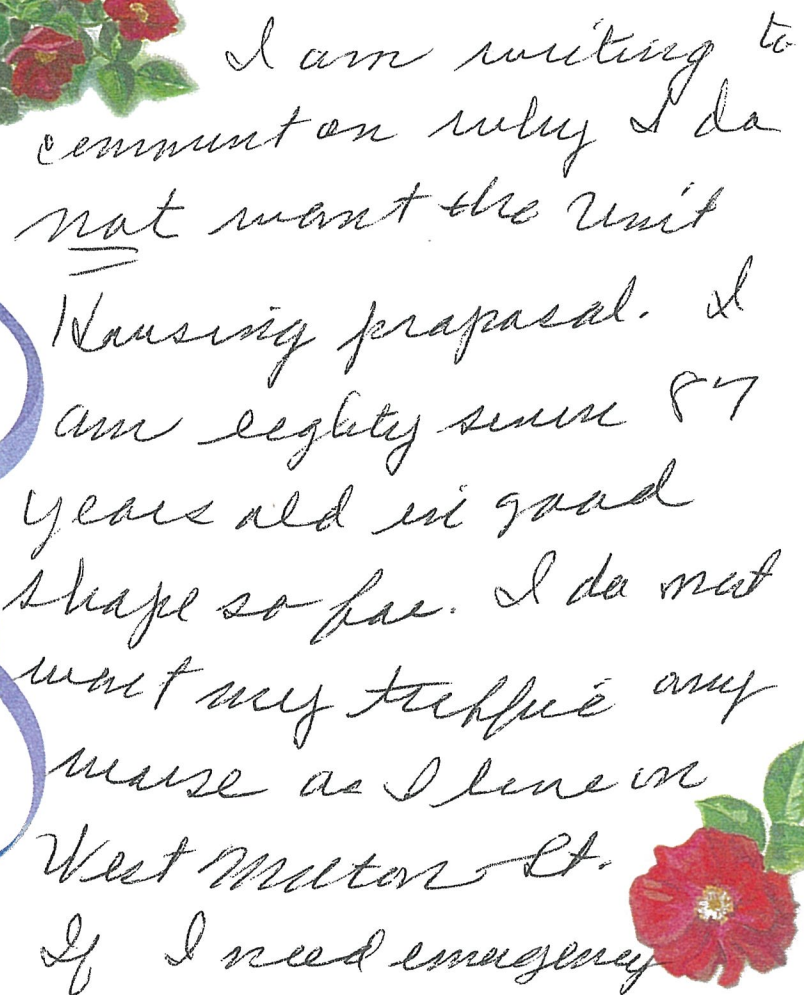 I am writing to
comment on why I do
not want the Unit
Housing proposal. I
am eighty seven 87
years old in good
shape so far. I do not
want my traffic any
worse as I live on
West Milton St.
If I need emergency